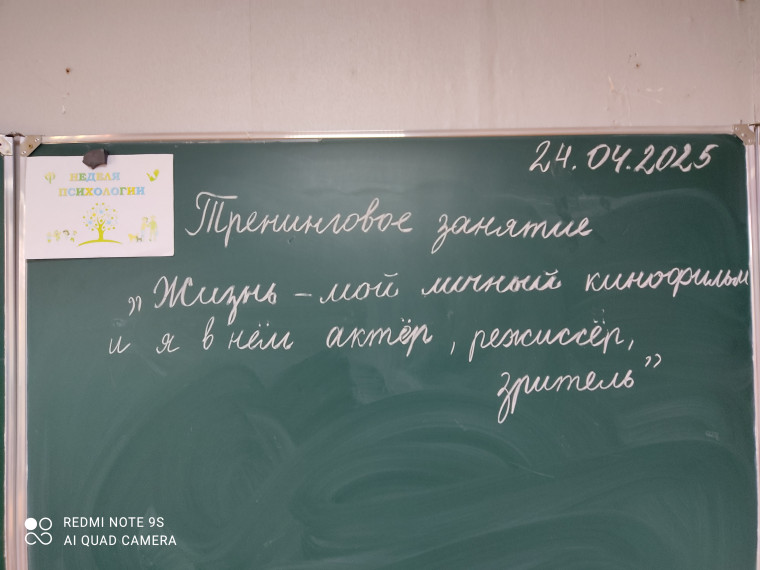 24.04.2025
НЕДЕЛЯ
ПСИХОЛОГИИ
Тренинговое занятие
„Жизнь – мой личный кинофильм
и я в нём актёр, режиссёр,
зритель”
REDMI NOTE 9S
AI QUAD CAMERA